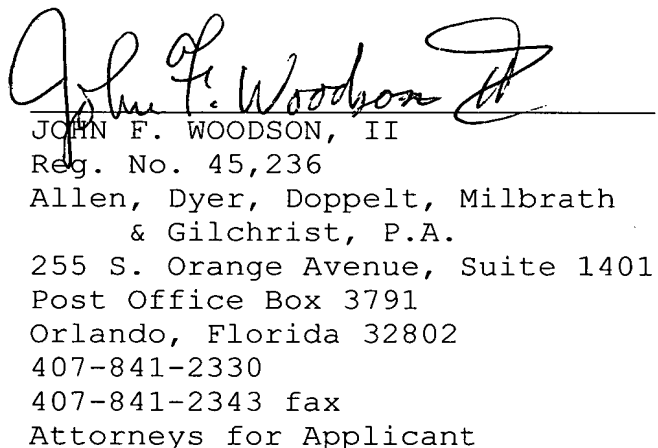 John F. Woodson II
JOHN F. WOODSON, II
Reg. No. 45,236
Allen, Dyer, Doppelt, Milbrath
& Gilchrist, P.A.
255 S. Orange Avenue, Suite 1401
Post Office Box 3791
Orlando, Florida 32802
407-841-2330
407-841-2343 fax
Attorneys for Applicant